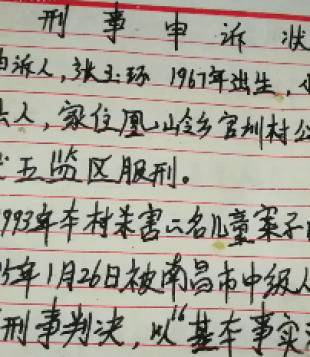 刑事申诉状
诉人，张玉环 1967年出生，
人，家住凰岭乡官圳村公
五监区服刑。
1993年本村杀害二名儿童案子
5年1月26日被南昌市中级人
刑事判决，以“基本事实